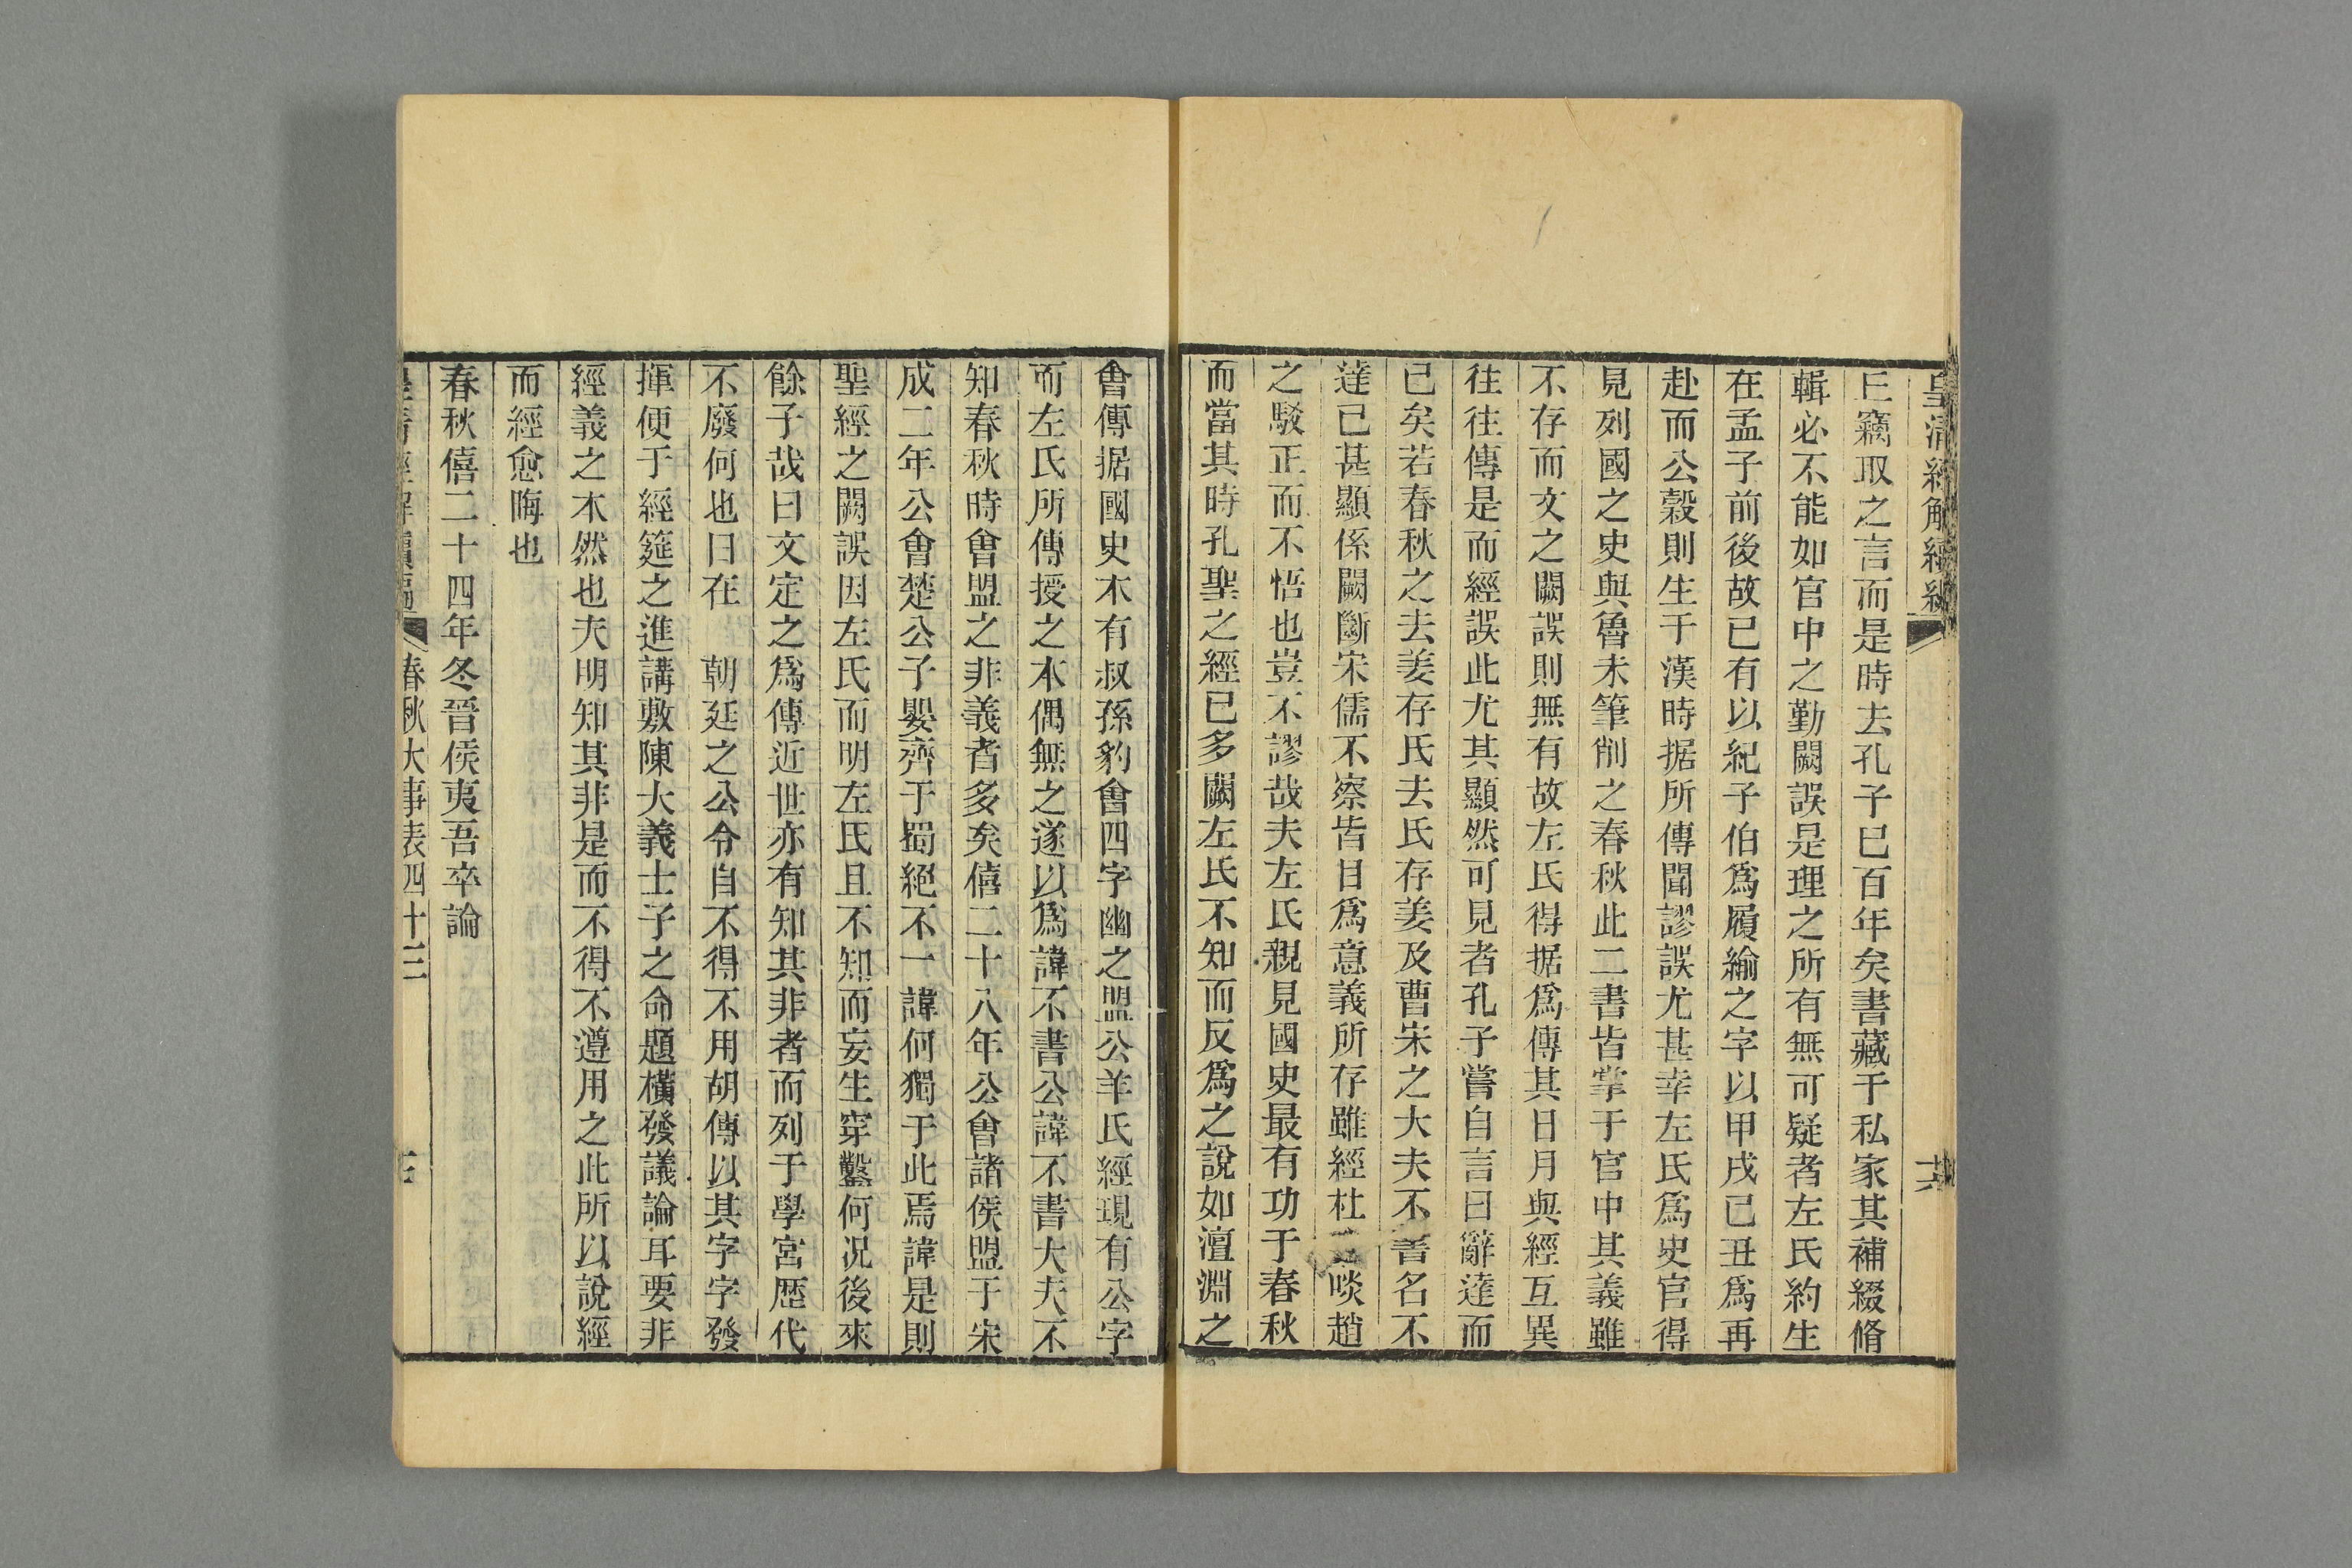 皇清經解續編 六
上竊取之言而是時去孔子已百年矣書藏于私家其補綴脩
輯必不能如官中之勤闕誤是理之所有無可疑者左氏約生
在孟子前後故已有以紀子伯爲履緰之字以甲戌已丑爲再
赴而公穀則生于漢時据所傳聞謬誤尤甚幸左氏爲史官得
見列國之史與魯未筆削之春秋此二書皆掌于官中其義雖
不存而文之闕誤則無有故左氏得据爲傳其日月與經互異
往往傳是而經誤此尤其顯然可見者孔子嘗自言曰辭達而
已矣若春秋之去姜存氏去氏存姜及曹宋之大夫不書名不
達已甚顯係闕斷宋儒不察皆目爲意義所存雖經杜啖趙
之駁正而不悟也豈不謬哉夫左氏親見國史最有功于春秋
而當其時孔聖之經已多闕左氏不知而反爲之說如澶淵之
會傳据國史木有叔孫豹會四字幽之盟公羊氏經現有公字
而左氏所傳授之本偶無之遂以爲諱不書公諱不書大夫不
知春秋時會盟之非義者多矣僖二十八年公會諸侯盟于宋
成二年公會楚公子嬰齊于蜀絕不一諱何獨于此焉諱是則
聖經之闕誤因左氏而明左氏且不知而妄生穿鑿何况後來
餘子哉曰文定之爲傳近世亦有知其非者而列于學宮歷代
不廢何也曰在 朝廷之公令自不得不用胡傳以其字字發
揮便于經筵之進講敷陳大義士子之命題橫發議論耳要非
經義之本然也夫明知其非是而不得不遵用之此所以說經
而經愈晦也
春秋僖二十四年冬晉侯夷吾卒論
皇清經解續編 春秋大事表四十三